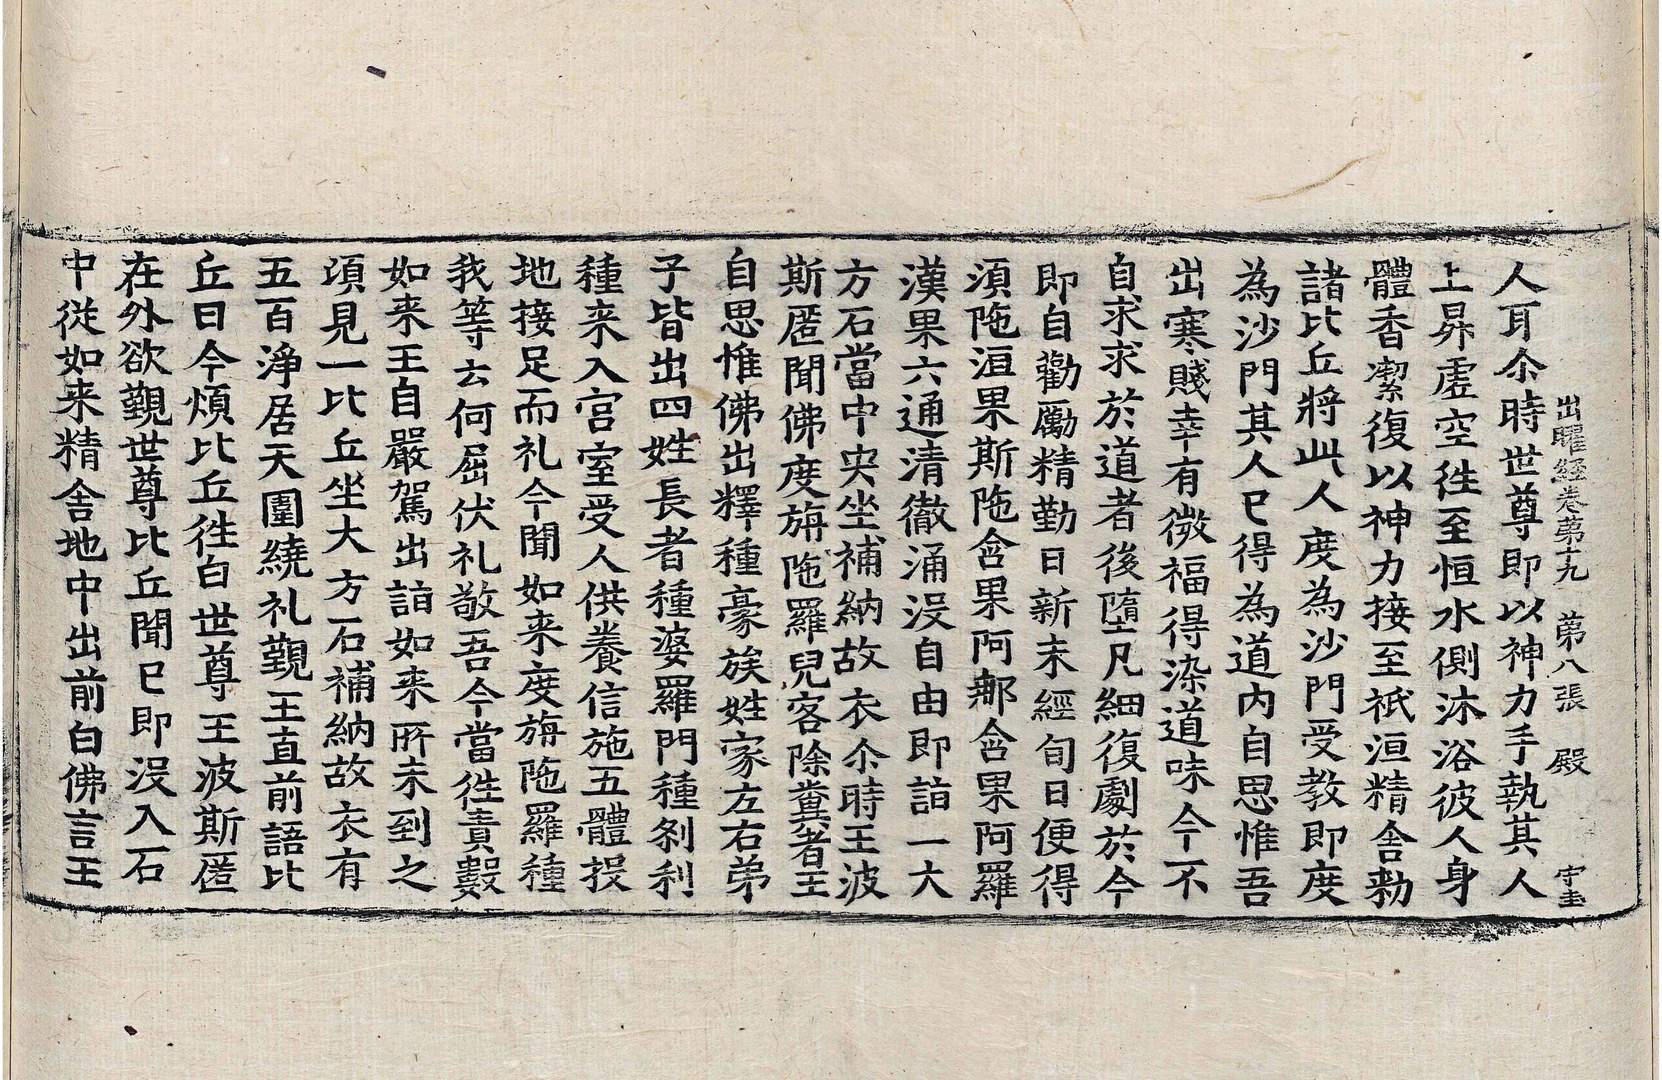 出曜経卷第十九 第八張 殿 宇圭
人耳尒時世尊即以神力手執其人
上昇虛空徃至恒水側沐浴彼人身
體香潔復以神力接至祇洹精舍勑
諸比丘將此人度為沙門受教即度
為沙門其人已得為道内自思惟吾
出寒賤幸有微福得染道味今不
自求求於道者後墮凡細復劇於今
即自勸勵精勤日新未經旬日便得
須陁洹果斯陁含果阿那含果阿羅
漢果六通清徹涌没自由即詣一大
方石當中央坐補納故衣尒時王波
斯匿聞佛度旃陁羅兒客除糞者王
自思惟佛出釋種豪族姓家左右弟
子皆出四姓長者種婆羅門種刹利
種来入宫室受人供養信施五體投
地接足而礼今聞如来度旃陁羅種
我等云何屈伏礼敬吾今當徃責數
如来王自嚴駕出詣如来所未到之
頃見一比丘坐大方石補納故衣有
五百淨居天圍繞礼覲王直前語比
丘曰今煩比丘徃白世尊王波斯匿
在外欲覲世尊比丘聞已即没入石
中從如来精舍地中出前白佛言王